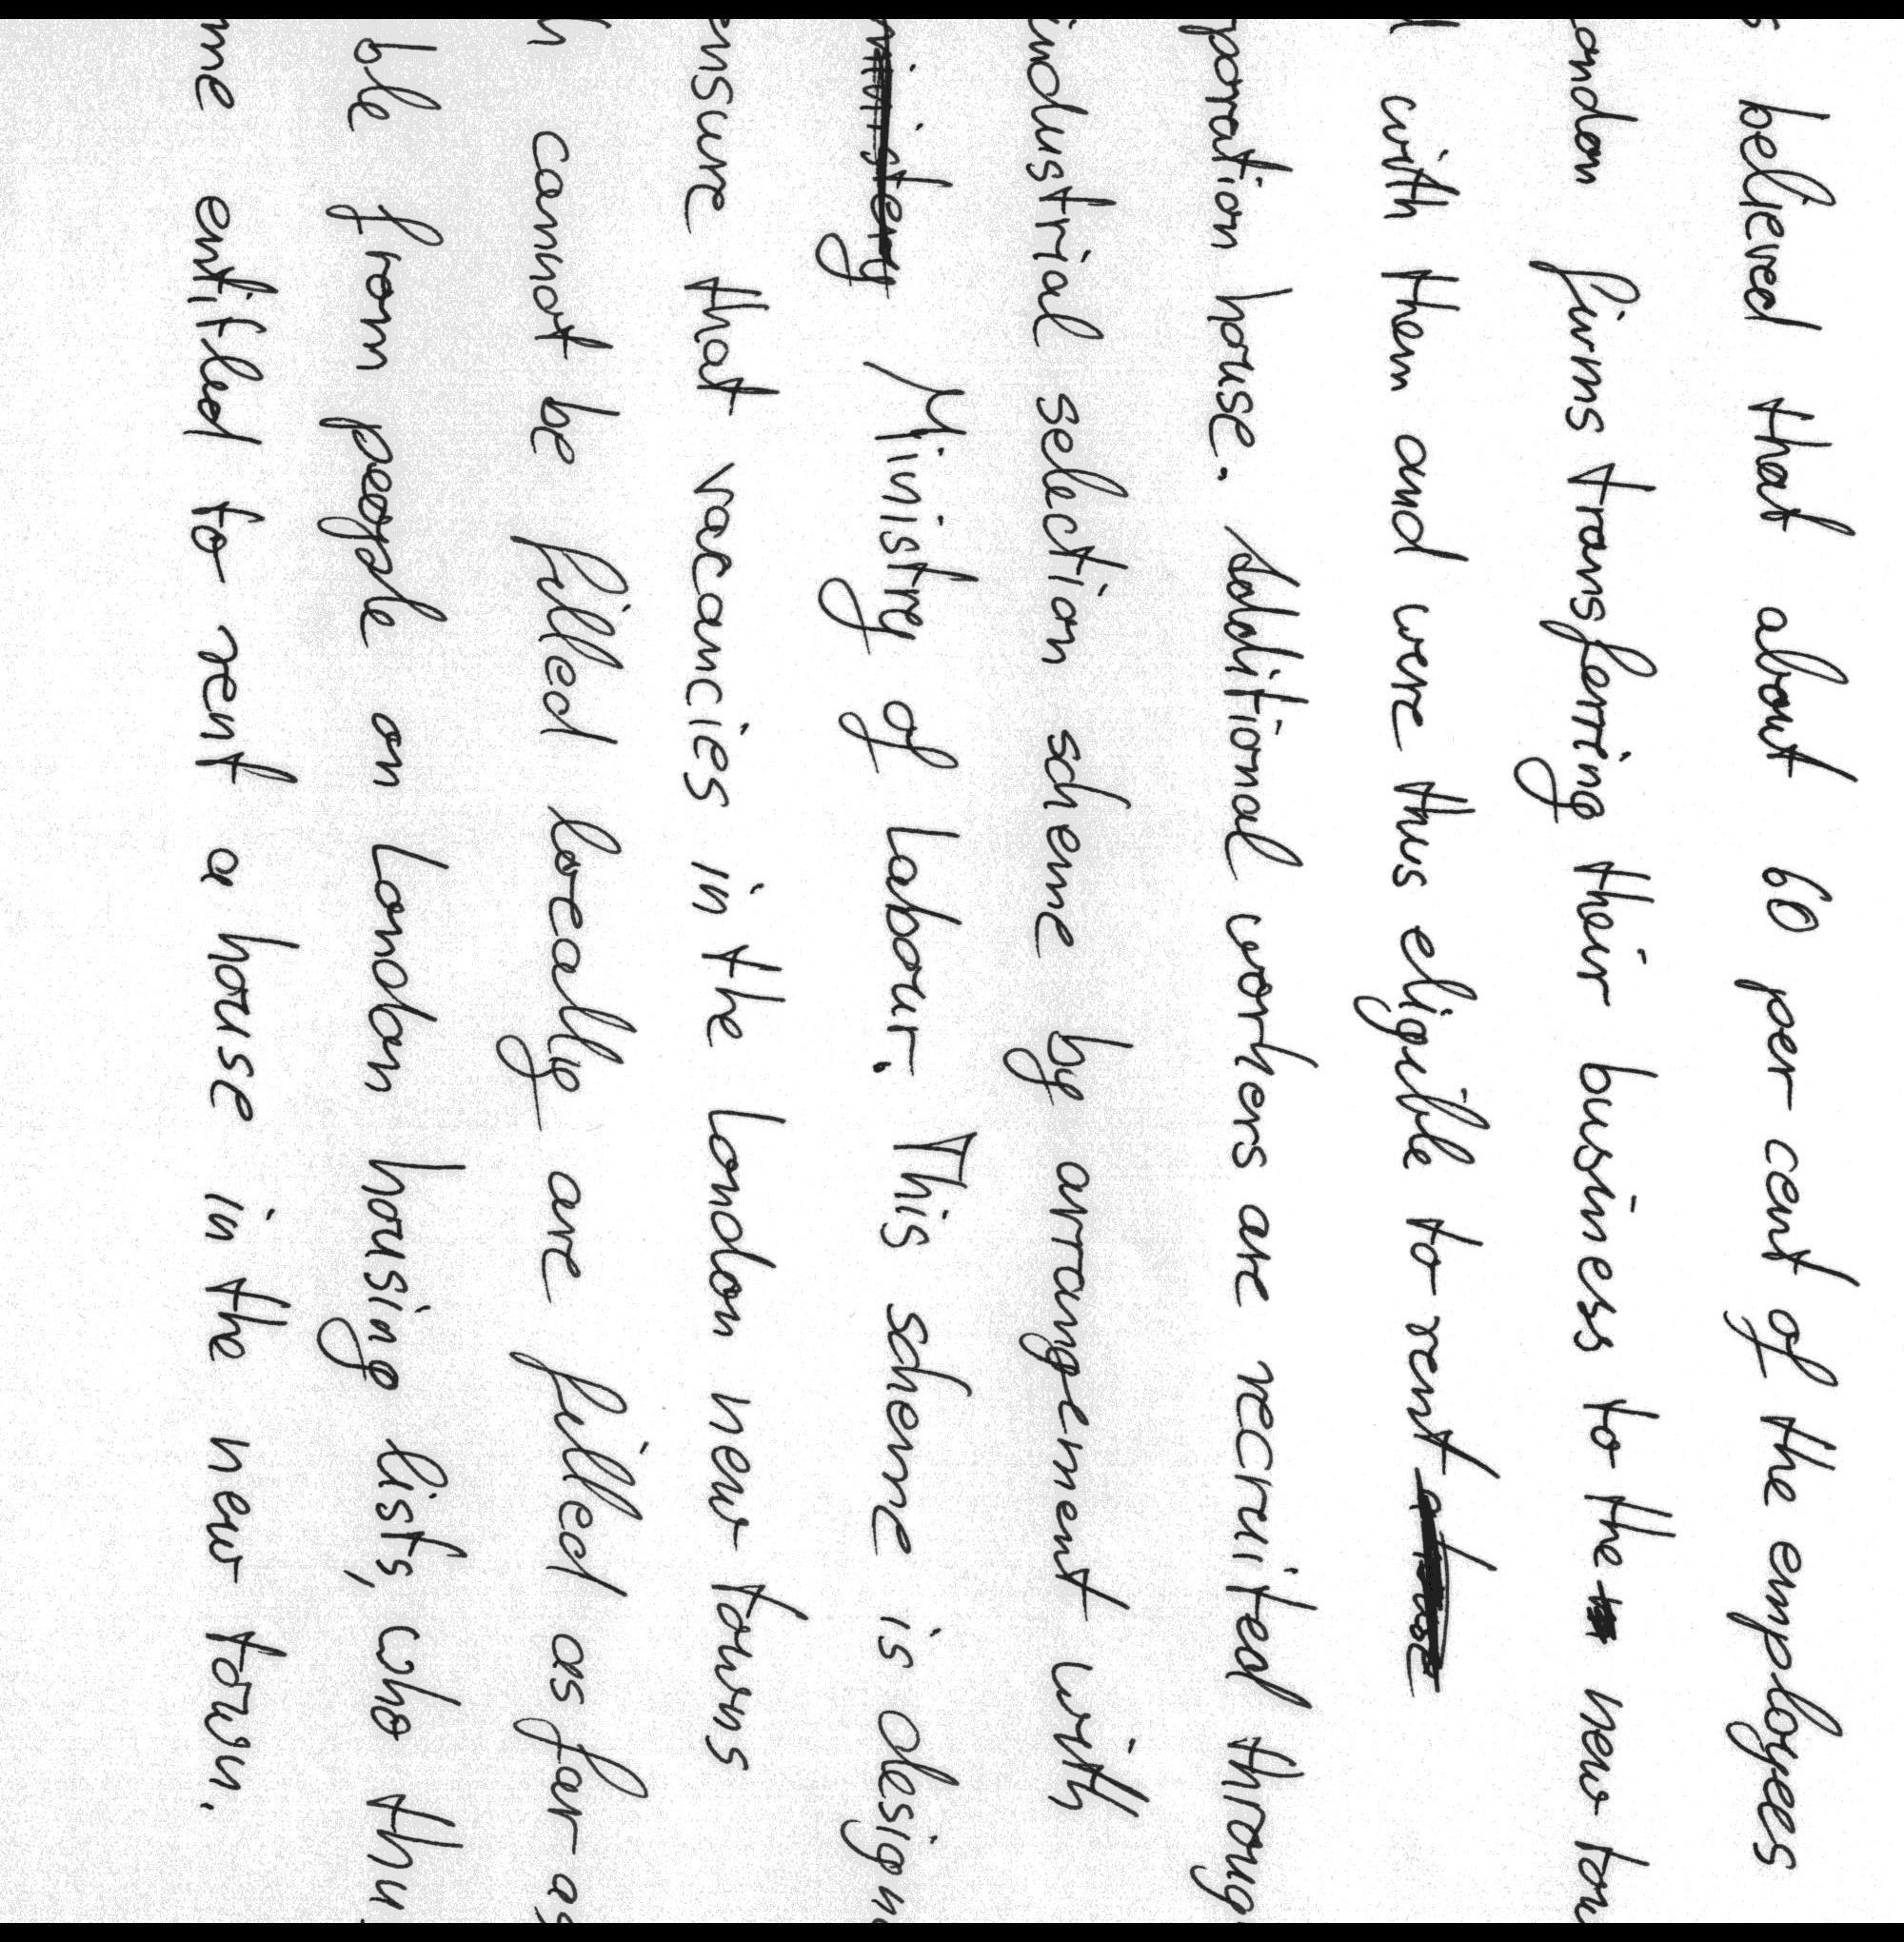 s believed that about 60 per cent of the employees
ondon firms transferring their business to the new tow
d with them and were thus eligible to rent
poration house. Additional workers are recruited throug
industrial selection scheme by arrangement with
Ministry of Labour. This scheme is design
ensure that vacancies in the London new towns
h cannot be filled locally are filled as far as
ble from people on London housing lists, who thu
me entitled to rent a house in the new town.